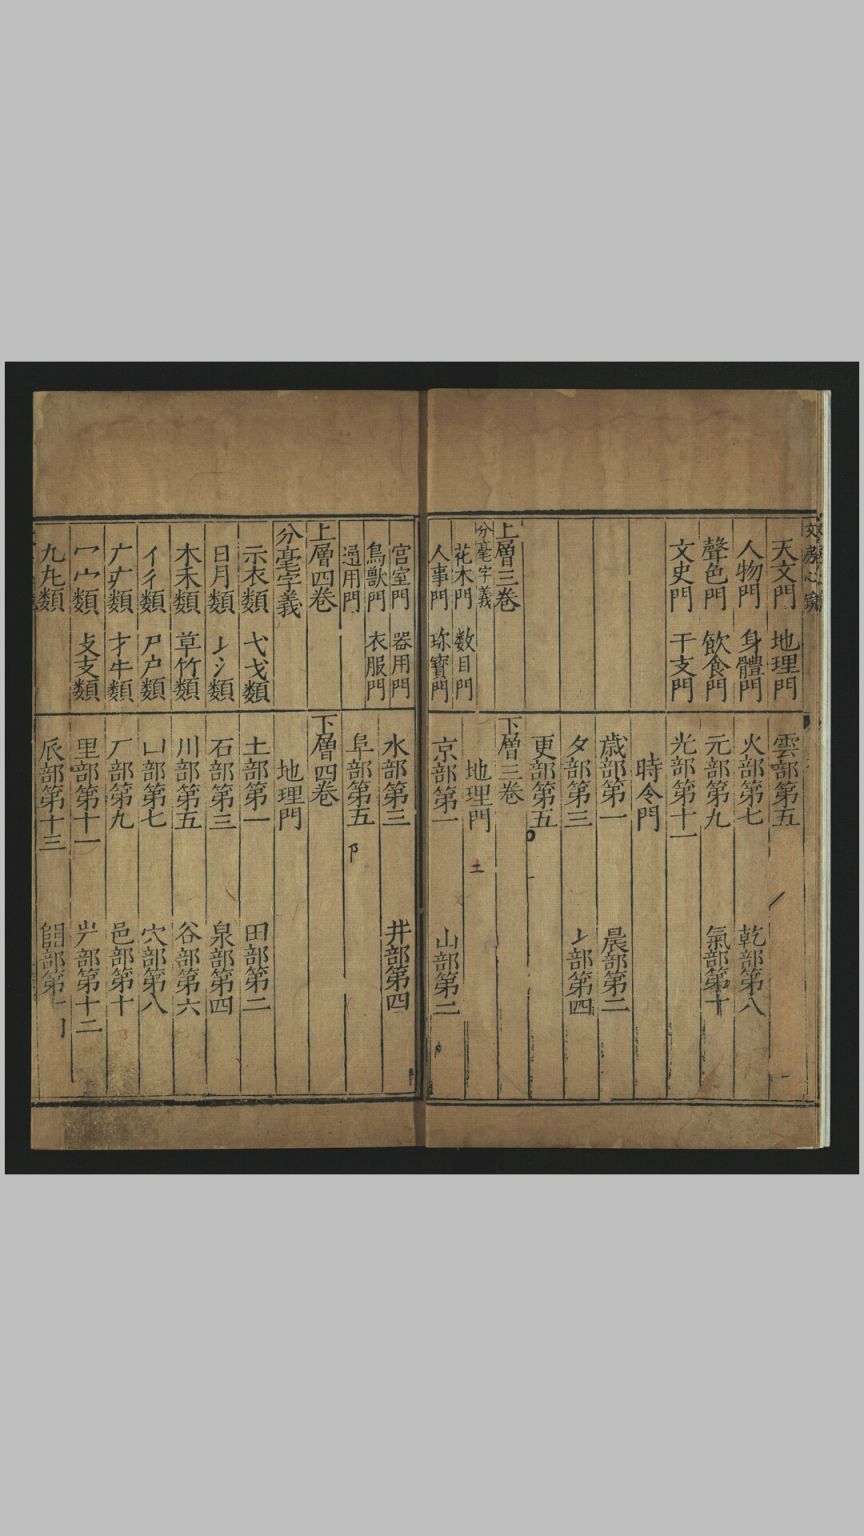 天文門 地理門
人物門 身體門
聲色門 飲食門
文史門 干支門
雲部第五
火部第七 乾部第八
元部第九 氣部第十
光部第十一
時令門
歲部第一 晨部第二
夕部第三 部第四
更部第五
上層三卷
分毫字義
花木門 数目門
人事門 珎寶門
下層三卷
地理門
京部第一 山部第二
宮室門 器用門
鳥獸門 衣服門
通用門
水部第三 井部第四
阜部第五 阝
上層四卷
分毫字義
示衣類 弋戈類
日月類 冫氵類
木禾類 草竹類
亻彳類 尸户類
广疒類 才牛類
冖宀類 攴支類
類
下層四卷
地理門
土部第一 田部第二
石部第三 泉部第四
川部第五 谷部第六
凵部第七 穴部第八
厂部第九 邑部第十
里部第十一 部第十二
辰部第十三 部第十